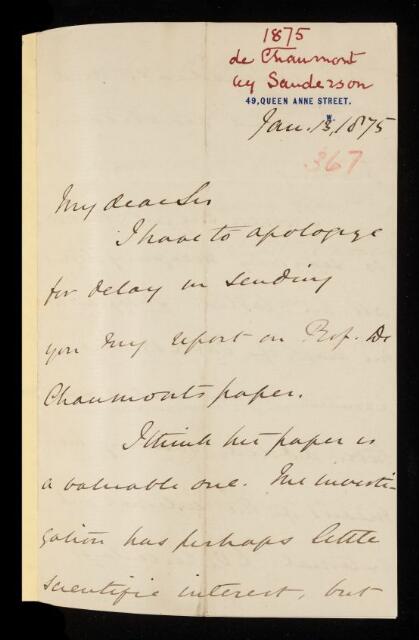 1875
de Chaumont
by Sanderson
49, QUEEN ANNE STREET.
W.
Jan. 13, 1875
367
My dear Sir
I have to apologize
for delay in sending
you my report on Prof. De
Chaumont's paper.
I think his paper is
a valuable one. The investi-
gation has perhaps little
scientific interest, but